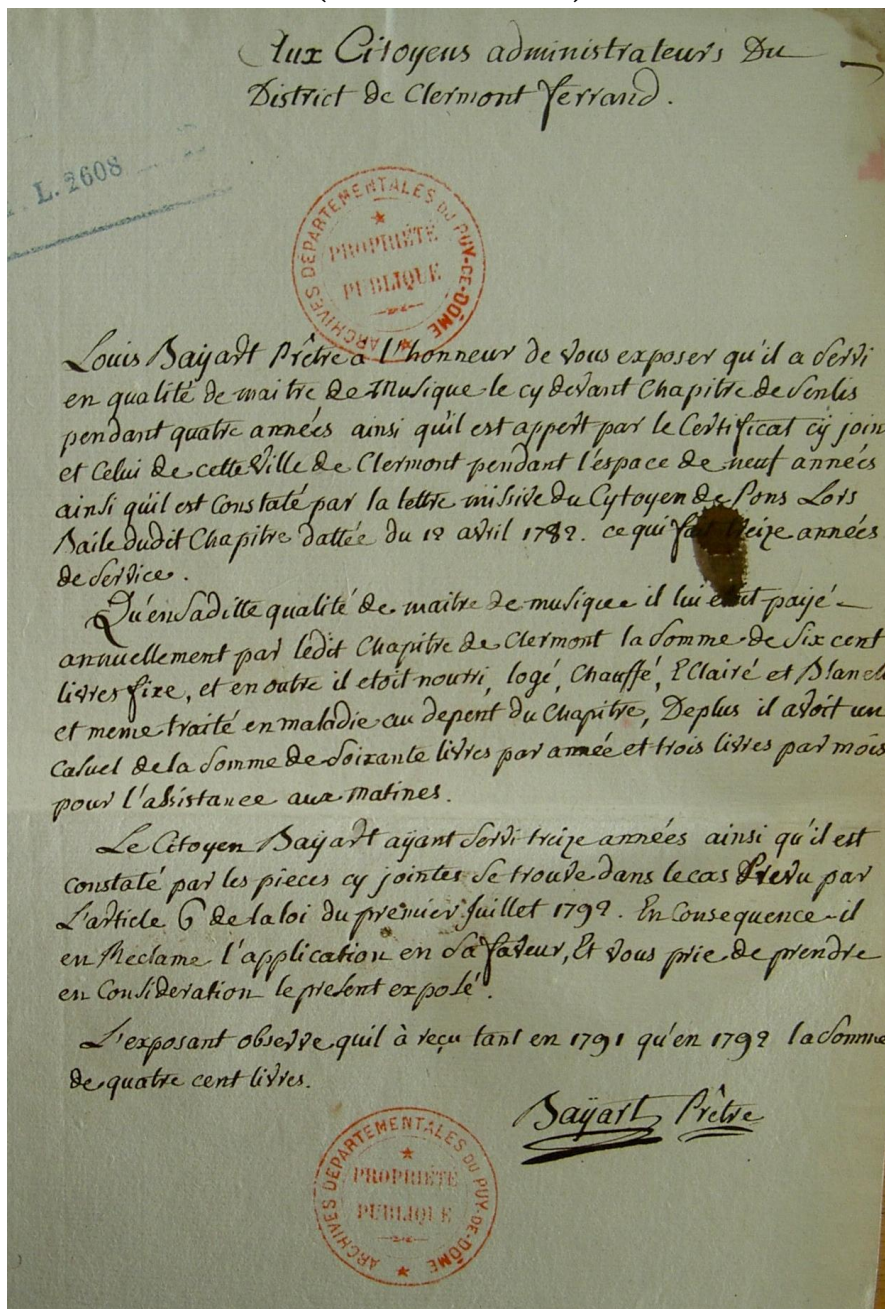 Aux Citoyens administrateurs Du
District de Clermont ferrand.
L. 2608
ARCHIVES DÉPARTEMENTALES DU PUY-DE-DÔME
PROPRIÉTÉ
PUBLIQUE
Louis Baÿart Prêtre a l'honneur de vous exposer qu'il a servi
en qualité de maitre de Musique le cy devant Chapitre de senlis
pendant quatre années ainsi qu'il est appert par le Certificat cÿ join
et Celui de cette Ville de Clermont pendant l'espace de neuf années
ainsi qu'il est Constaté par la lettre missive du Cytoyen de Pons Lors
Baile dudit Chapitre dattée du 12 avril 1782. ce qui fait treize années
de service.
Qu'en saditte qualité de maitre de musique il lui etoit paÿé
annuellement par ledit Chapitre de Clermont la somme de six cent
livres fixe, et en outre il etoit nourri, logé, Chauffé, EClairé et Blanch
et meme traité en maladie au depent du Chapitre, Deplus il avoit un
Casuel de la somme de soixante livres par année et trois livres par mois
pour l'assistance aux matines.
Le Citoyen Baÿart aÿant servi treize années ainsi qu'il est
constaté par les pieces cy jointes se trouve dans le cas Prevu par
L'article 6 de la loi du premier Juillet 1792. En Consequence il
en Reclame l'application en sa faveur, Et vous prie de prendre
en Consideration le present exposé.
L'exposant observe quil à reçu tant en 1791 qu'en 1792 la somme
de quatre cent livres.
Baÿart Prêtre
ARCHIVES DÉPARTEMENTALES DU PUY-DE-DÔME
PROPRIÉTÉ
PUBLIQUE